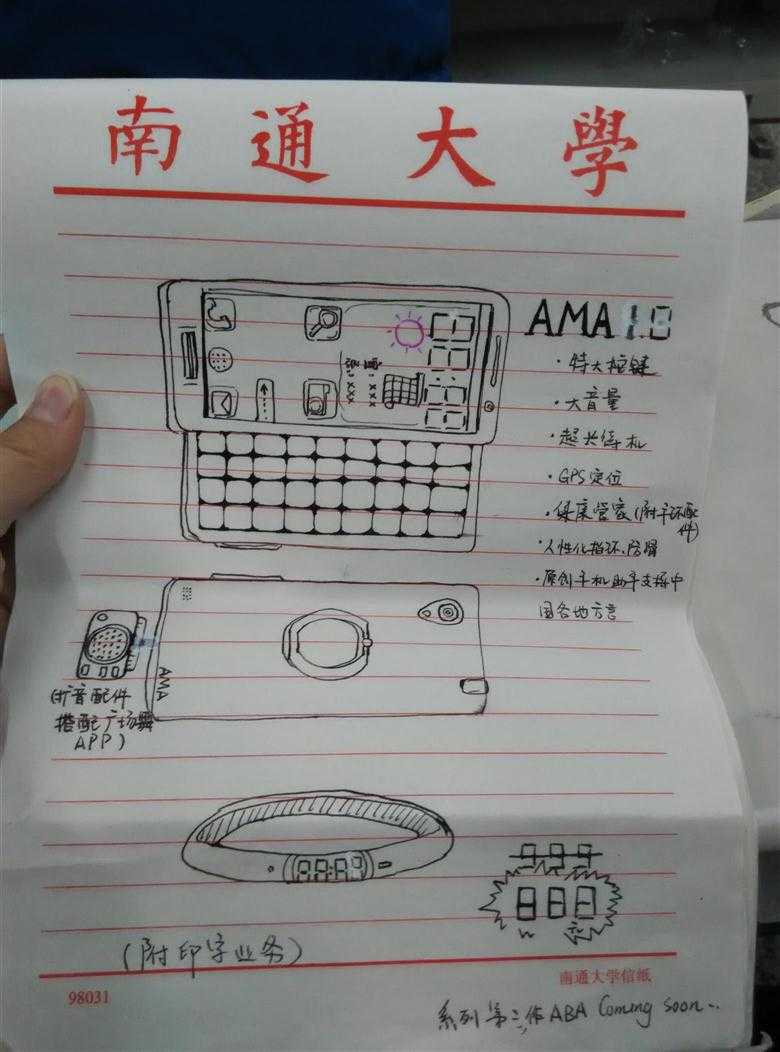 南通大學
AMA1.0
·特大按键
·大音量
·超长待机
·GPS定位
·健康管家(附手环配
件)
·人性化指环,防滑
·原创手机助手支持中
国各地方言
AMA
(扩音配件
搭配广场舞
APP)
888
(附印字业务)
98031
南通大学信纸
系列第二作ABA Coming soon...